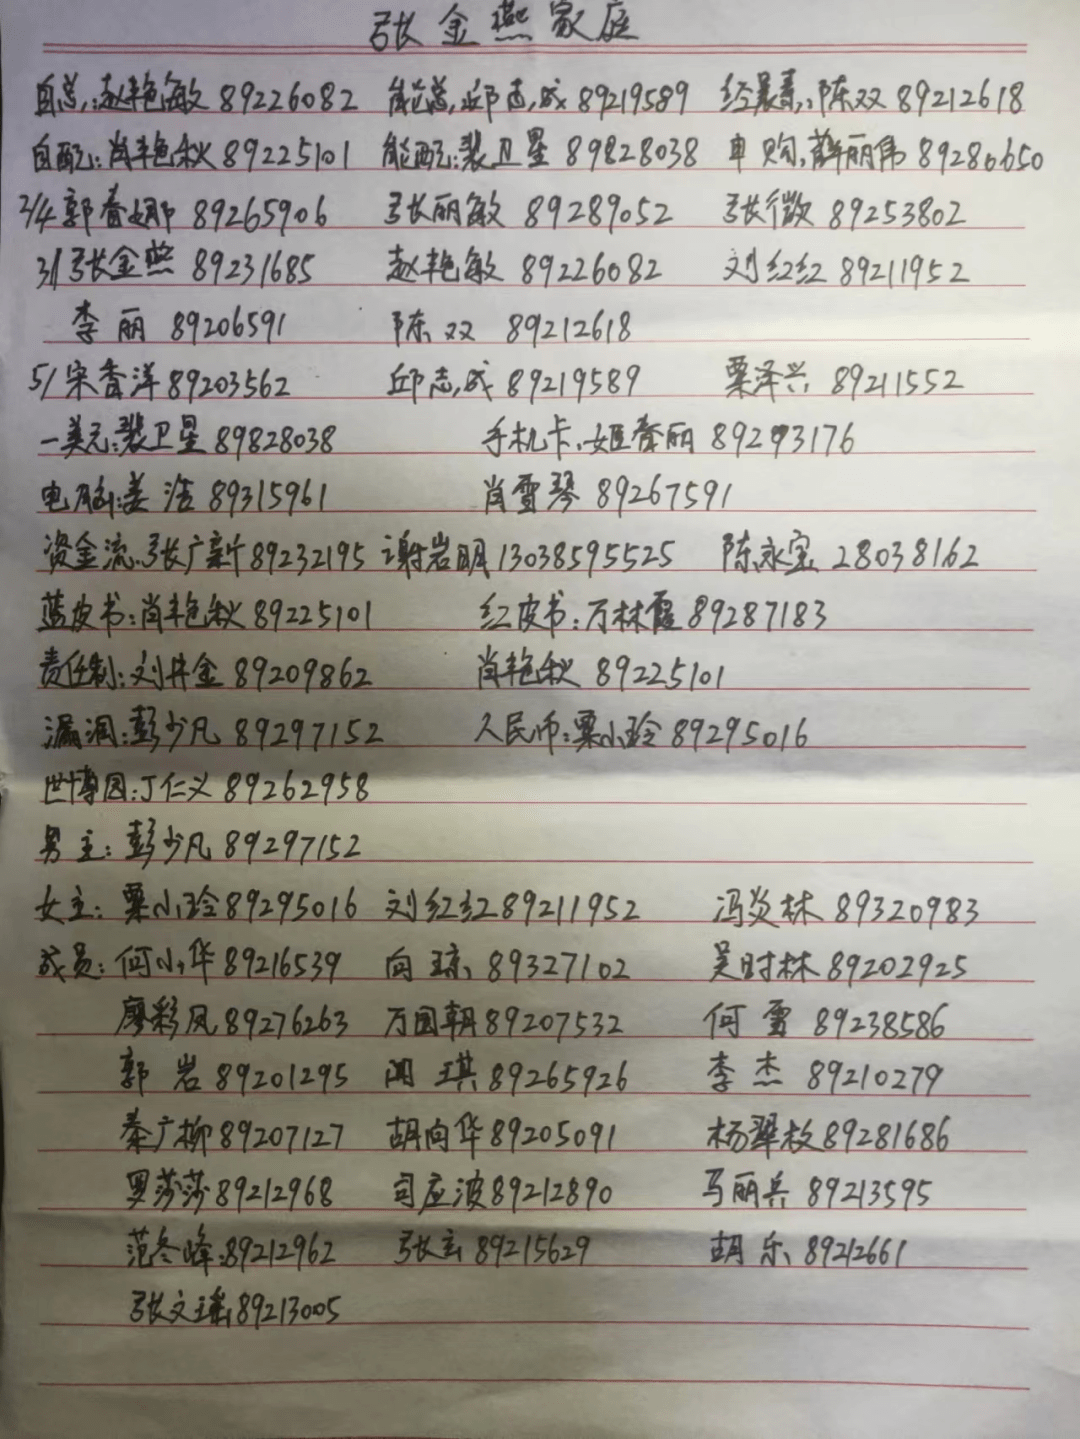 张金燕家庭
自总:赵艳敏 89226082 能总:邱志成 89219589 经晨音:陈双 89212618
自配:肖艳秋 89225101 能配:裴卫星 89828038 申购:薛丽伟 89280650
2/4郭香娜 89265906 张丽敏 89289052 张微 89253802
3/1张金燕 89231685 赵艳敏 89226082 刘红红 89211952
李丽 89206591 陈双 89212618
5/宋香洋 89203562 邱志成 89219589 粟泽兴 89211552
一美元:裴卫星 89828038 手机卡:姬春丽 89293176
电脑:姜浩 89315961 肖雪琴 89267591
资金流:张广新 89232195 谢岩明 13038595525 陈永宝 28038162
蓝皮书:肖艳秋 89225101 红皮书:万林霞 89287183
责任制:刘井金 89209862 肖艳秋 89225101
漏洞:彭少凡 89297152 人民币:粟小玲 89295016
世博园:丁仁义 89262958
男主:彭少凡 89297152
女主:粟小玲 89295016 刘红红 89211952 冯炎林 89320983
成员:何小华 89216539 向琼 89327102 吴时林 89202925
廖彩凤 89276263 万国朝 89207532 何雪 89238586
郭岩 89201295 闻琪 89265926 李杰 89210279
秦广柳 89207127 胡向华 89205091 杨翠枝 89281686
罗莎莎 89212968 司应波 89212890 马丽兵 89213595
范冬峰:89212962 张玄 89215629 胡乐 89212661
张文瑶 89213005